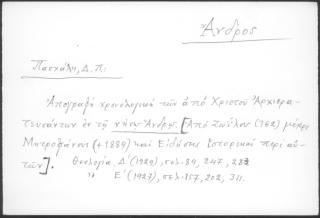 Ἄνδρος
Πασχάλη, Δ. Π.
Ἀπογραφὴ χρονολογικὴ τῶν ἀπὸ Χριστοῦ Ἀρχιερα-
τευσάντων ἐν τῇ νήσῳ Ἄνδρῳ. [Ἀπὸ Ζωΐλου (162) μέχρι
Μητροφάνους (+1889) καὶ Εἰδήσεις ἱστορικαὶ περὶ αὐ-
τῶν]. Θεολογία Δ' (1926), σελ. 89, 247, 283
" Ε' (1927), σελ. 157, 202, 311.